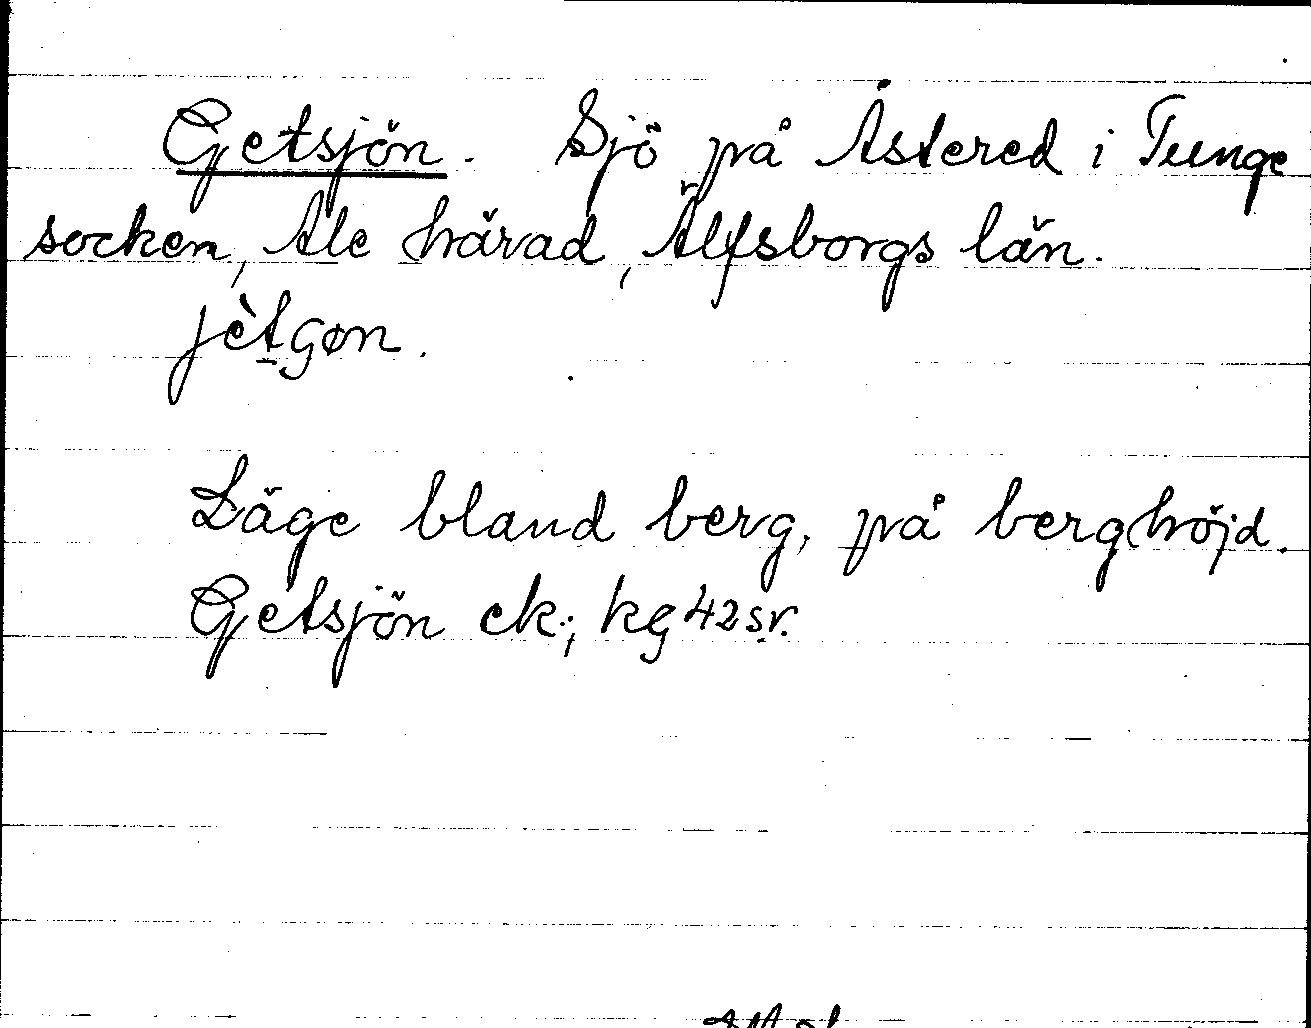 Getsjön. Sjö på Åstered i Tunge
socken, Ale härad, Älfsborgs län.
jètgøn.
Läge bland berg, på berghöjd.
Getsjön ek.; kg 42 sv.